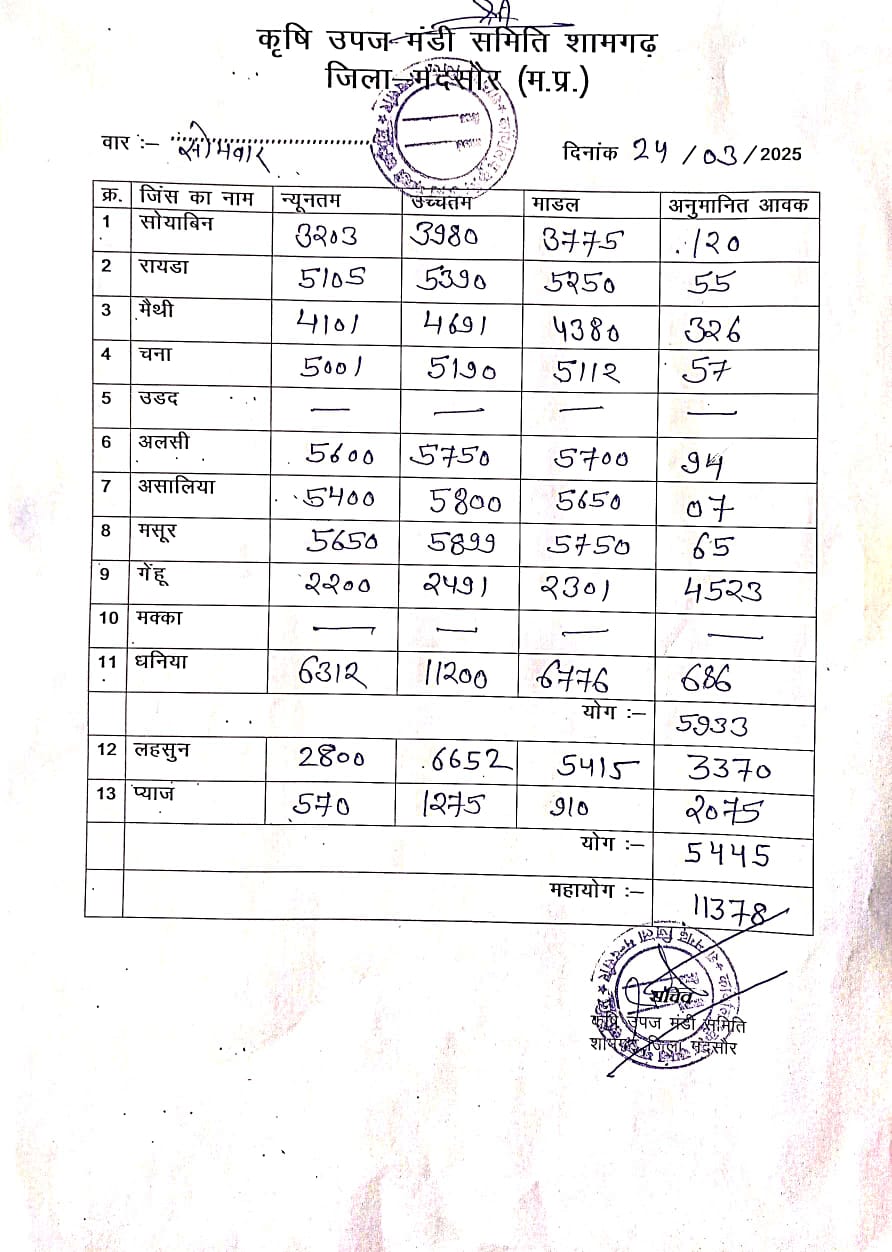 श्री
कृषि उपज मंडी समिति शामगढ़
जिला–मंदसौर (म.प्र.)
वार :– सोमवार दिनांक 24/03/2025
क्र. जिंस का नाम न्यूनतम उच्चतम माडल अनुमानित आवक
1 सोयाबिन 3203 3980 3775 120
2 रायडा 5105 5390 5250 55
3 मैथी 4101 4691 4380 326
4 चना 5001 5190 5112 57
5 उडद — — — —
6 अलसी 5600 5750 5700 94
7 असालिया 5400 5800 5650 07
8 मसूर 5650 5899 5750 65
9 गेंहू 2200 2491 2301 4523
10 मक्का — — — —
11 धनिया 6312 11200 6776 686
योग :– 5933
12 लहसुन 2800 6652 5415 3370
13 प्याज 570 1275 910 2075
योग :– 5445
महायोग :– 11378
सचिव
कृषि उपज मंडी समिति
शामगढ़ जिला मंदसौर